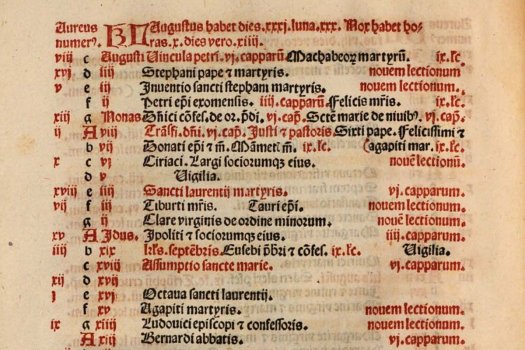 Aureus KL Augustus habet dies .xxxj. luna .xxx. Nox habet ho-
numerꝰ. ras .x. dies vero .xiiij.
viij c Augusti Uincula petri .vj. capparū Machabeoꝝ martyrū. ix. lc̄
xvj d iiij Stephani pape & martyris. nouem lectionum
v e iij Inuentio sancti stephani martyris. nouem lectionum.
f ij Petri ep̄i exomensis. iiij. capparū. Felicis mr̄is. ix. lc̄
xiij g Nonas Dn̄ici cōfes. de or. p̄di. vj. cap̄. Scte marie de niuibꝰ. vj. cap̄.
ij A viij Trāsfi. dn̄i. vj. cap̄. Justi & pastoris Sixti pape. Felicissimi &
b vij Donati ep̄i & m̄. Māmeti m̄. ix. lc̄. agapiti mar. ix. lc̄.
x c vj Ciriaci. Largi sociorumqꝫ eius. nouē lectionū.
d v Uigilia.
xviij e iiij Sancti laurentij martyris. vj. capparum.
vij f iij Tiburti mr̄is. Tauri ep̄i. nouem lectionum.
g ij Clare virginis de ordine minorum. nouē lectionum.
xv A Jdus. Ipoliti & sociorumqꝫ eius. iiij. capparum.
iiij b xix kl̄s. septēbris. Eusebi p̄bri & cōfes. ix. lc̄. Uigilia.
c xviij Assumptio sancte marie. vj. capparum.
xij d xvij
j e xvj Octaua sancti laurentij.
f xv Agapiti martyris. nouem lectionum.
ix g xiiij Ludouici episcopi & confessoris. iiij. capparum.
A xiij Bernardi abbatis. vj. capparum.